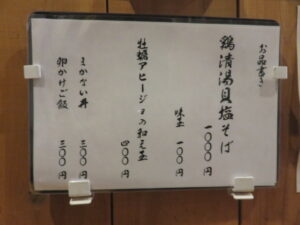 お品書き
鶏清湯貝塩そば
一〇〇〇円
味玉
一〇〇円
牡蠣アヒージョの和え玉
四〇〇円
まかない丼
三〇〇円
卵かけご飯
三〇〇円